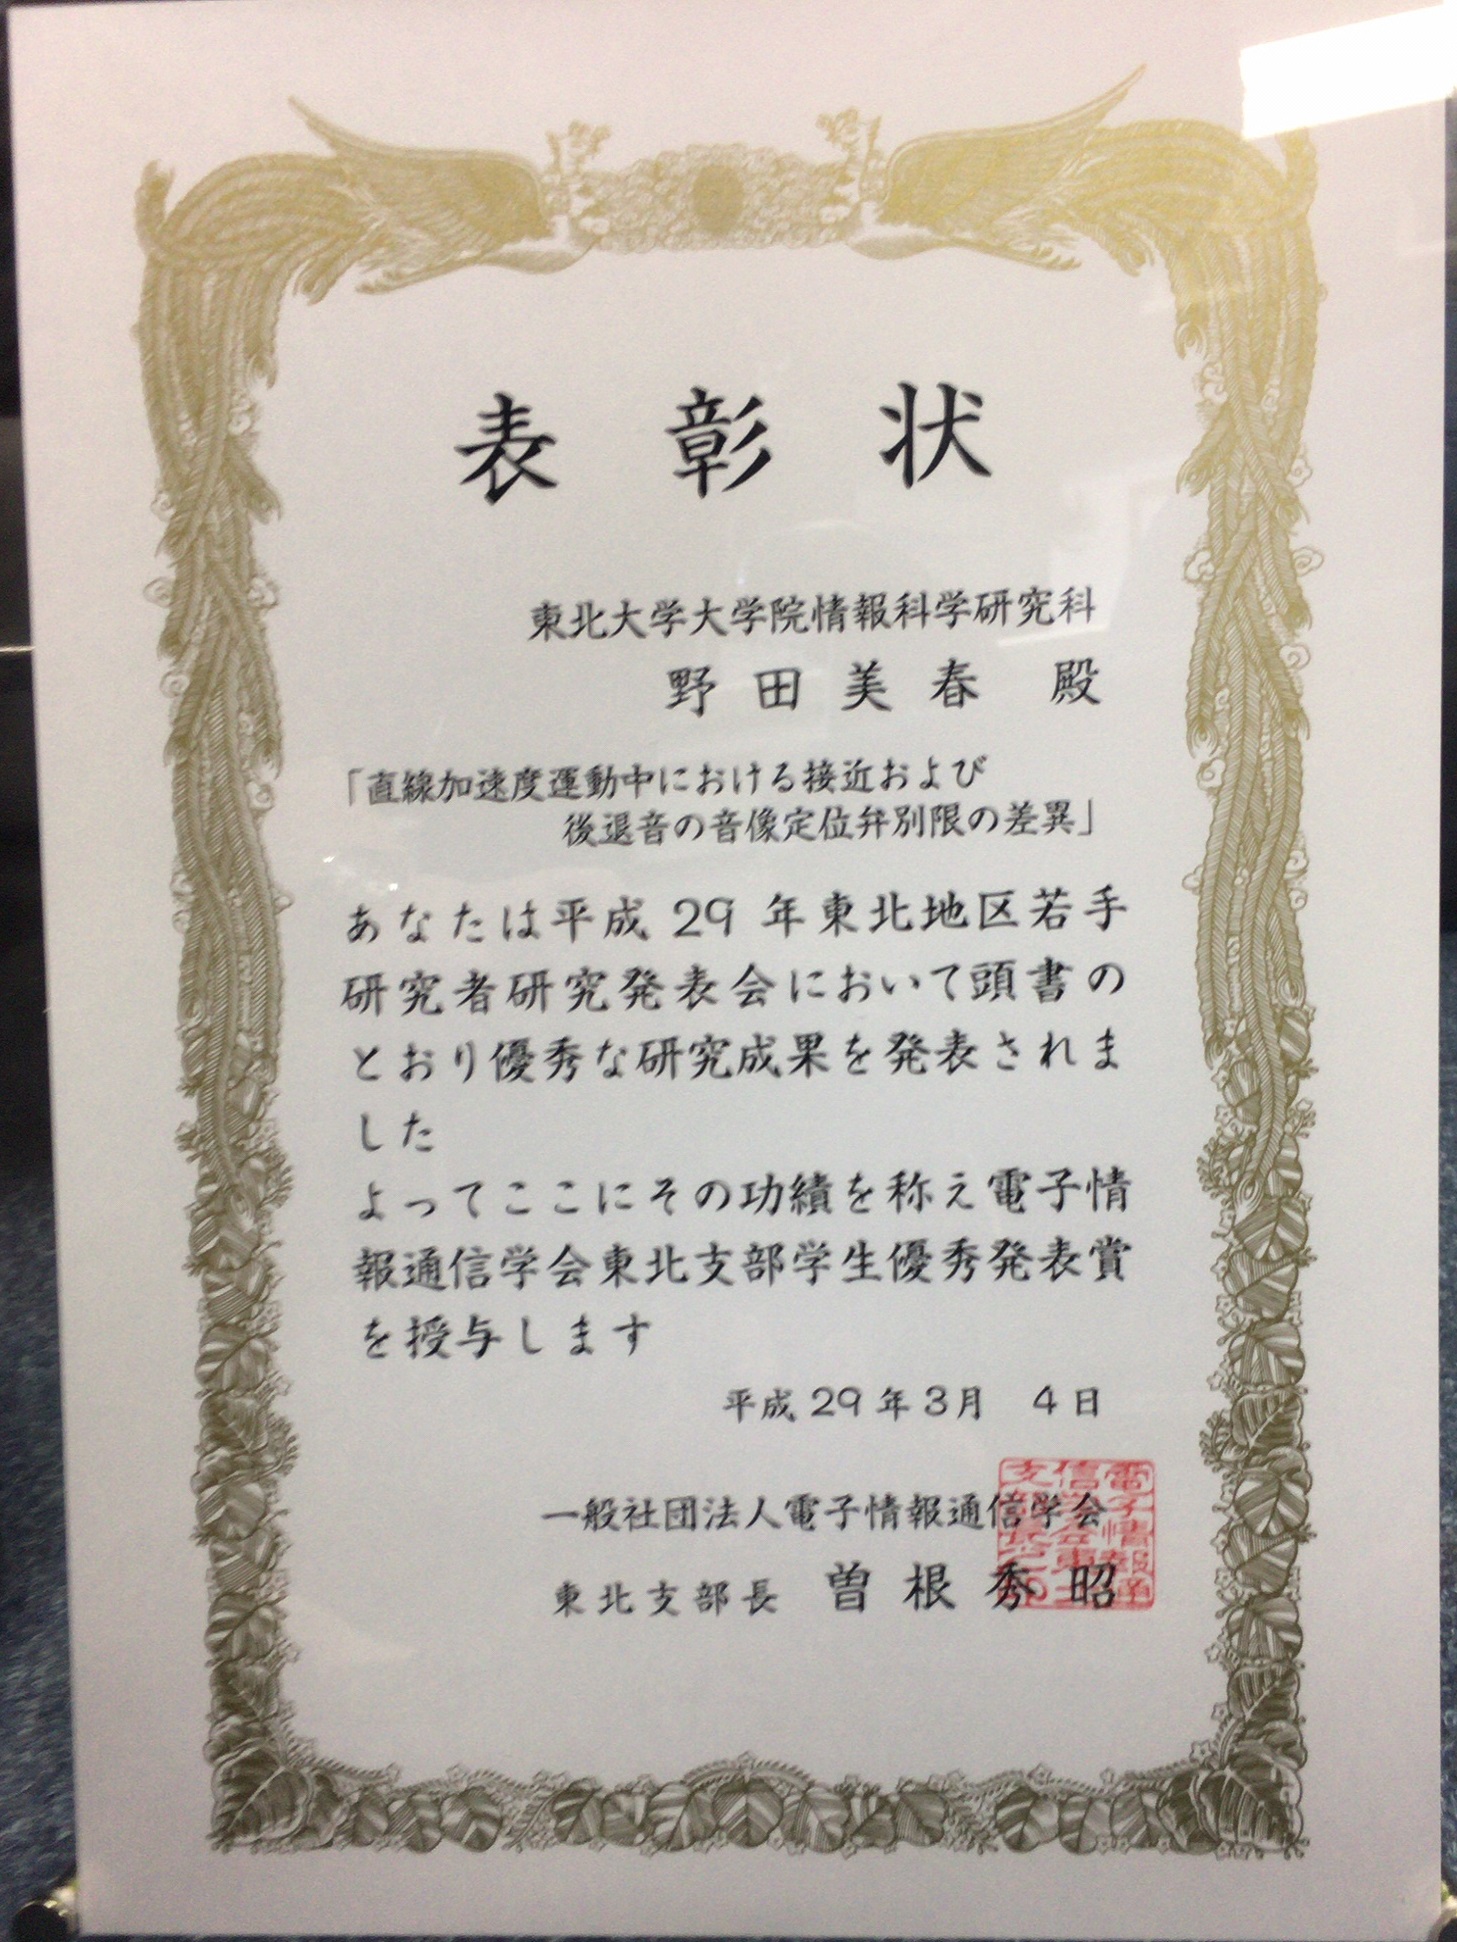 表彰状
東北大学大学院情報科学研究科
野田美春 殿
「直線加速度運動中における接近および
後退音の音像定位弁別限の差異」
あなたは平成29年東北地区若手
研究者研究発表会において頭書の
とおり優秀な研究成果を発表されま
した
よってここにその功績を称え電子情
報通信学会東北支部学生優秀発表賞
を授与します
平成29年3月 4日
一般社団法人電子情報通信学会
東北支部長 曽根秀昭